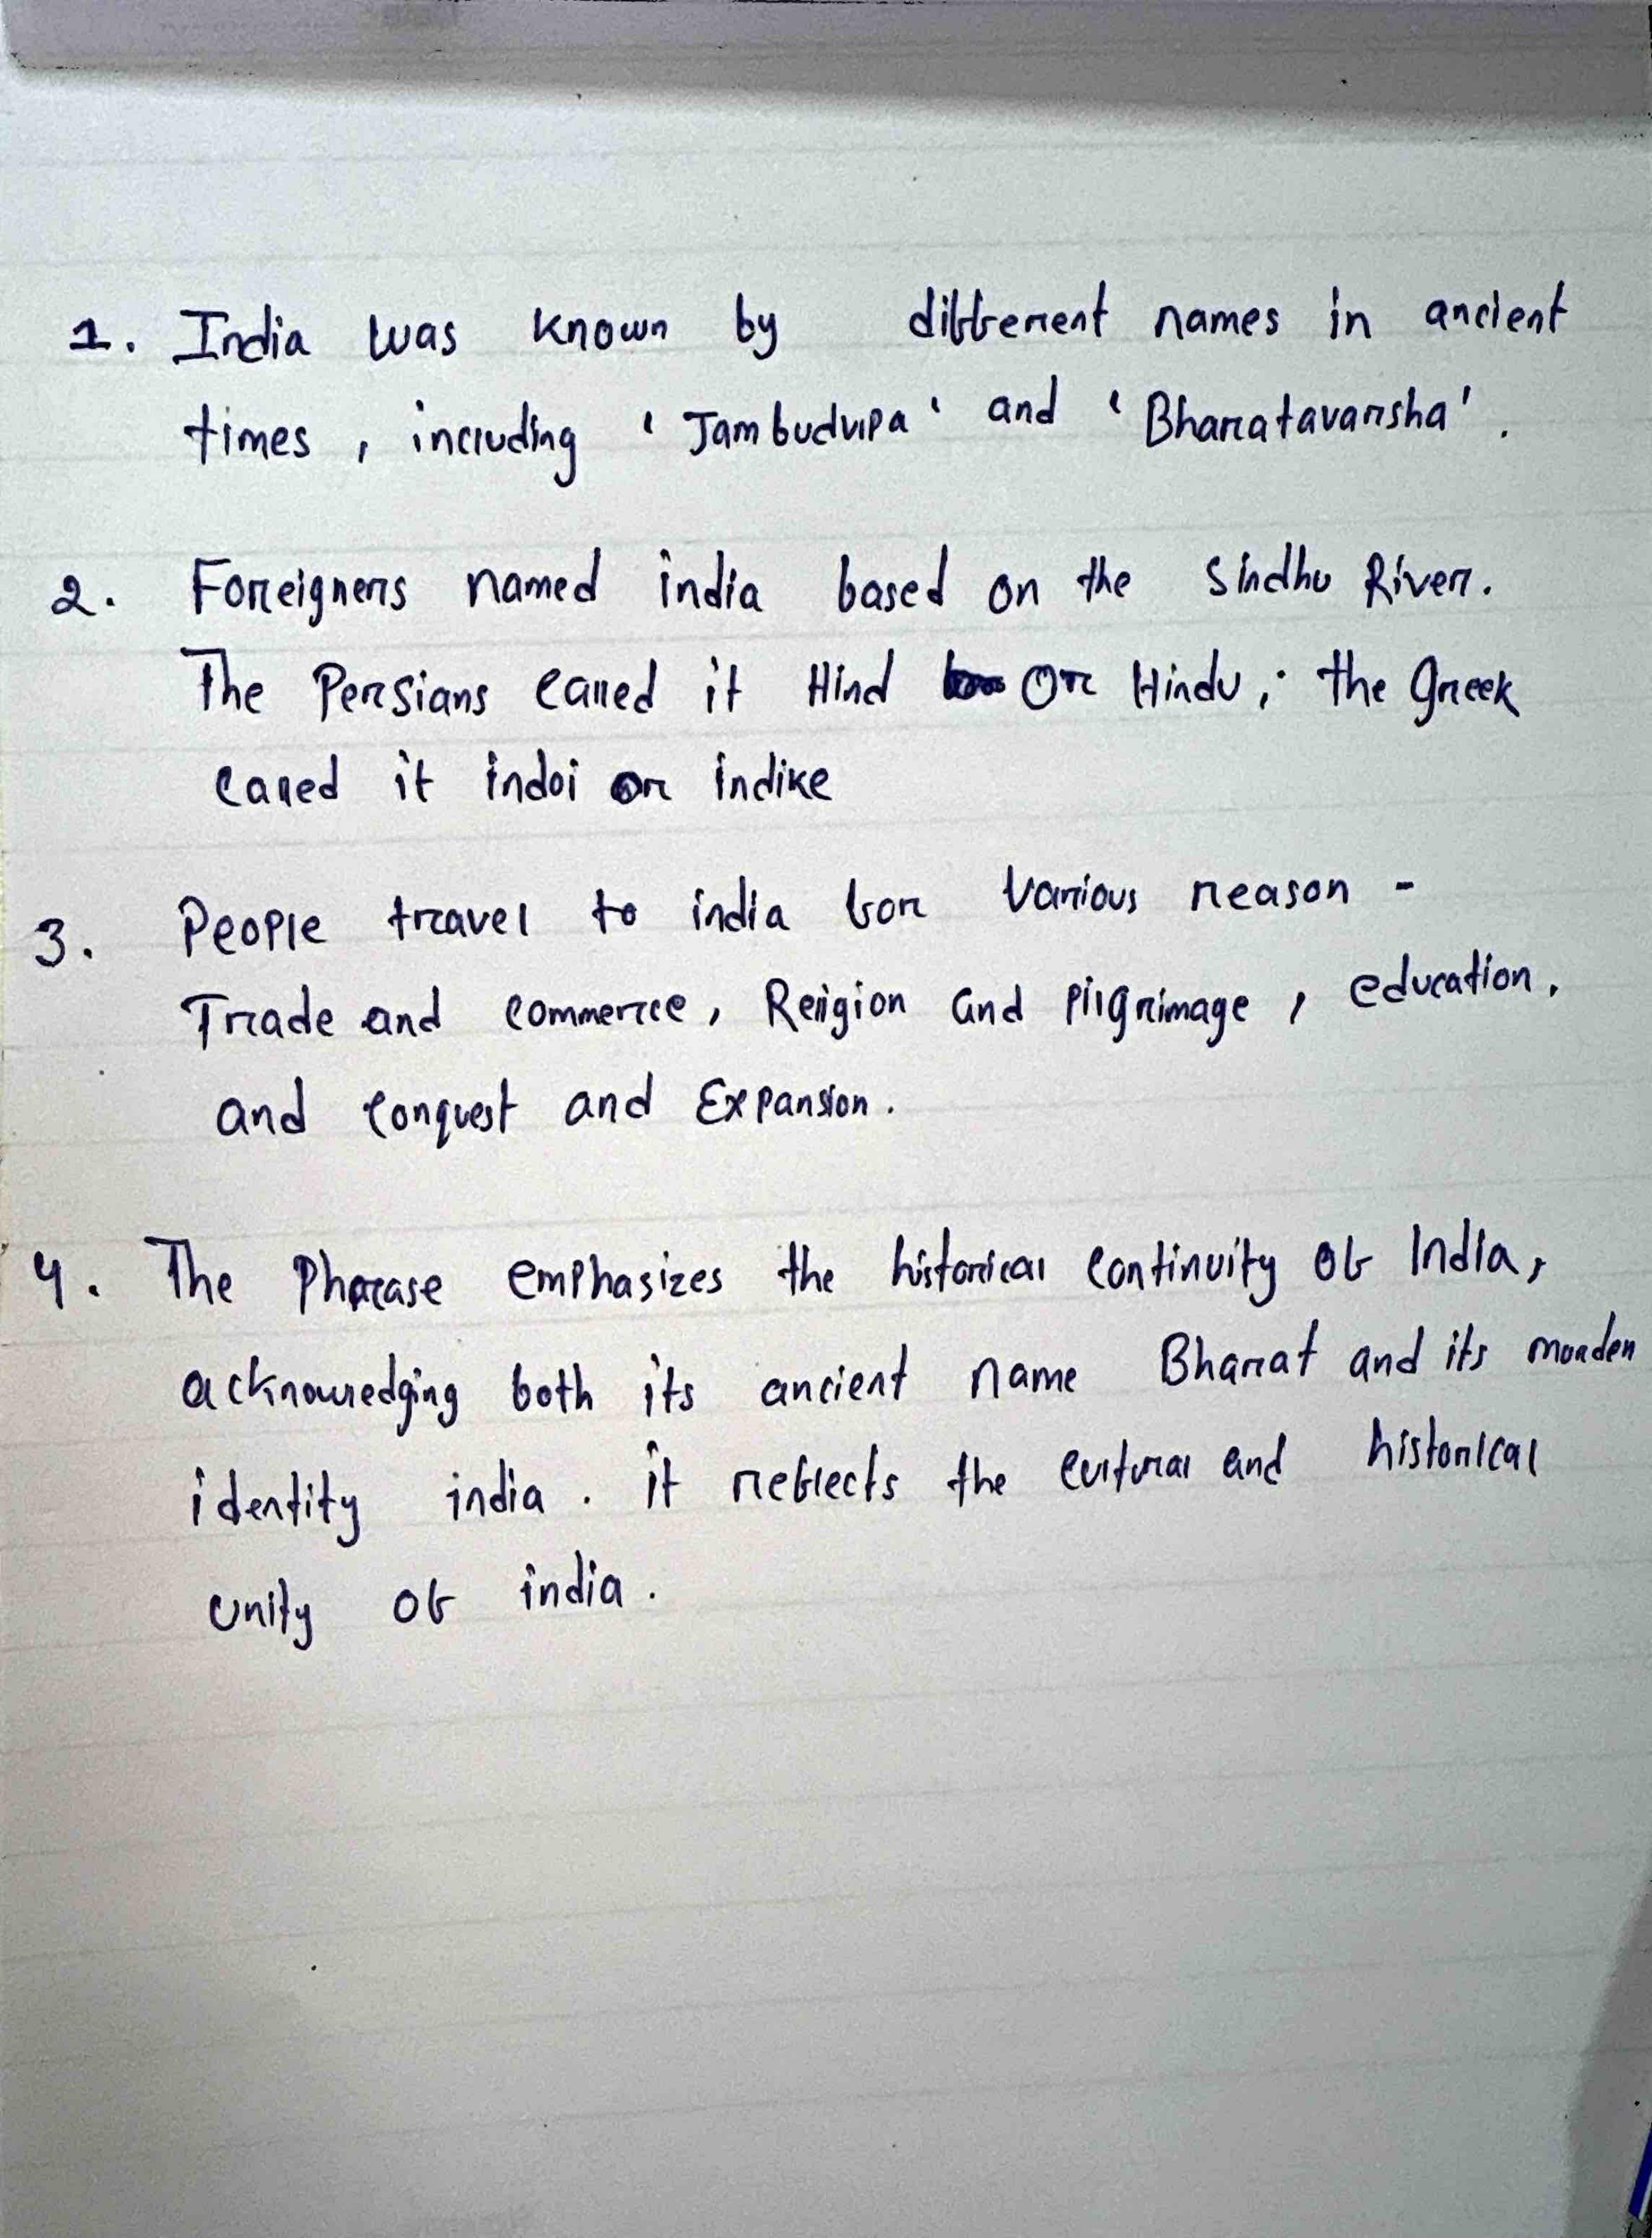 1. India was known by different names in ancient
times, including 'Jambudvipa' and 'Bharatavarsha'.
2. Foreigners named india based on the Sindhu River.
The Persians called it Hind or Hindu,; the Greek
called it indoi or indike
3. People travel to india for various reason -
Trade and commerce, Religion and pilgrimage, education,
and conquest and Expansion.
4. The Phrase emphasizes the historical continuity of India,
acknowledging both its ancient name Bharat and its morden
identity india. it reflects the cultural and historical
unity of india.